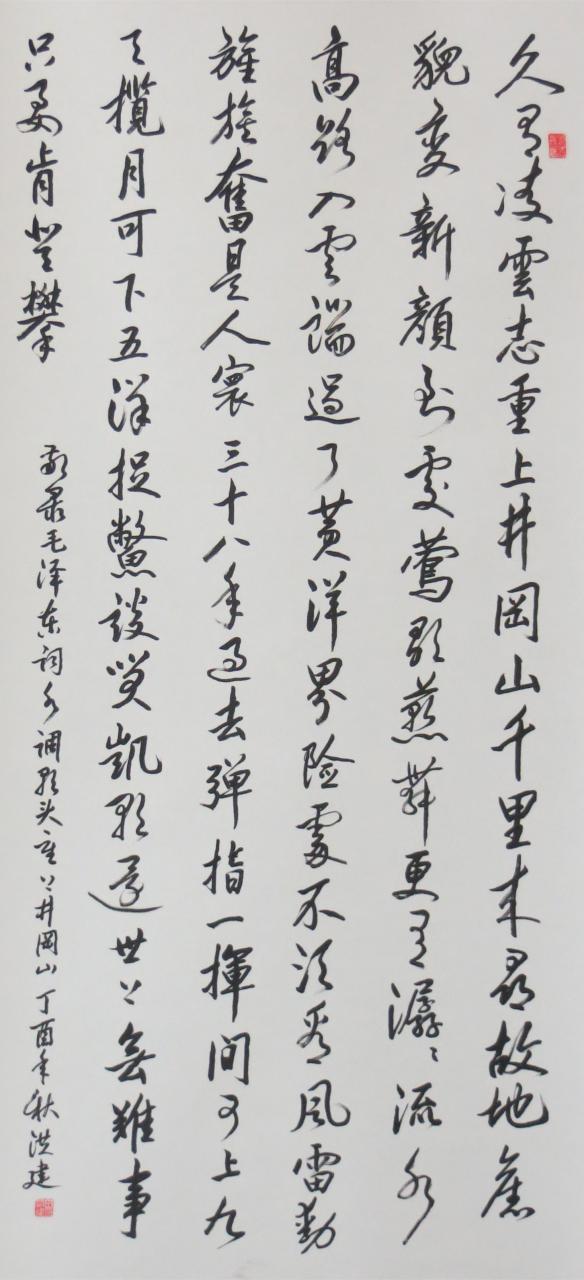 久有凌雲志重上井岡山千里来尋故地舊
貌变新顔到處鶯歌燕舞更有潺々流水
高路入雲端過了黄洋界险處不須看風雷動
旌旗奮是人寰三十八年過去彈指一揮间可上九
天攬月可下五洋捉鱉談笑凱歌還世上無難事
只要肯登攀
敬录毛泽东词水调歌头重上井岡山丁酉年秋洪建